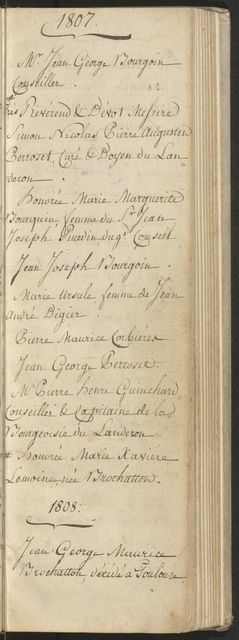 1807.
Mr. Jean George Bourgoin
Conseiller.
très Révérend & Dévot Messire
Simon Nicolas Pierre Augustin
Perroset, Curé & Doyen du Lan
deron.
Honorée Marie Marguerite
Bourguin femme du Sr. Jean
Joseph du gd. Conseil
Jean Joseph Bourgoin.
Marie Ursule femme de Jean
André Digier.
Pierre Maurice Corbières
Jean George Perroset.
Mr. Pierre Henri Guinchard,
Conseiller & Capitaine de la
Bourgeoisie du Landeron
Honorée Marie Xaviere
Lemoine, née Brochatton.
1808.
Jean-George Maurice
Brochatton décédé à Toulouse